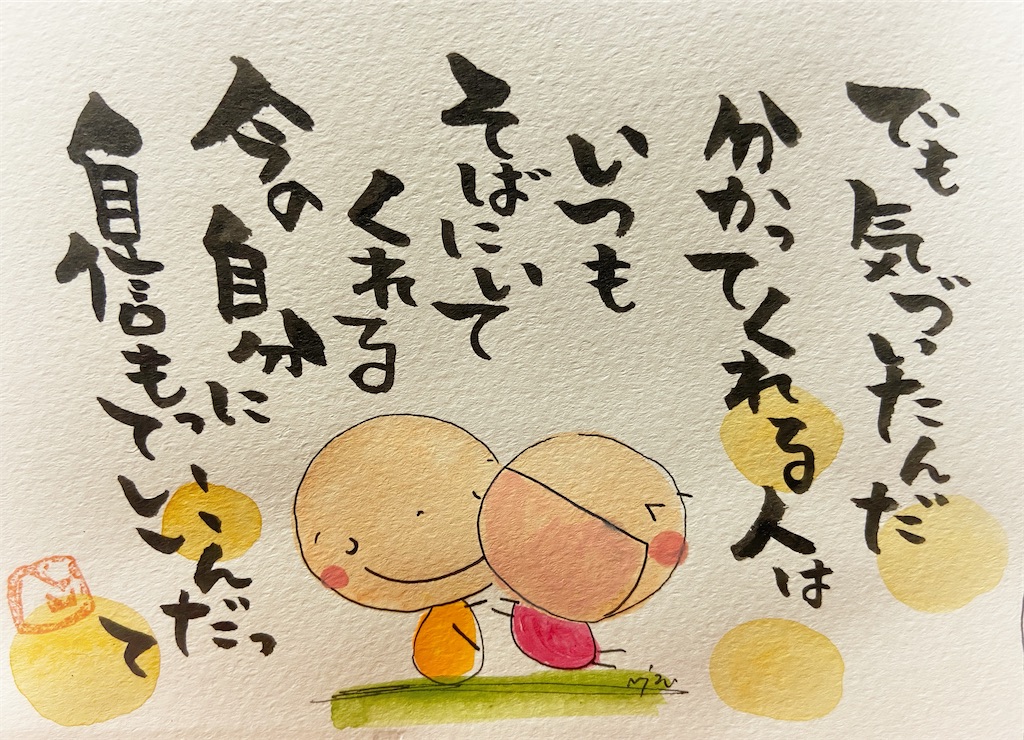 でも気づいたんだ
分かってくれる人は
いつも
そばにいて
くれる
今の自分に
自信もっていいんだっ
て